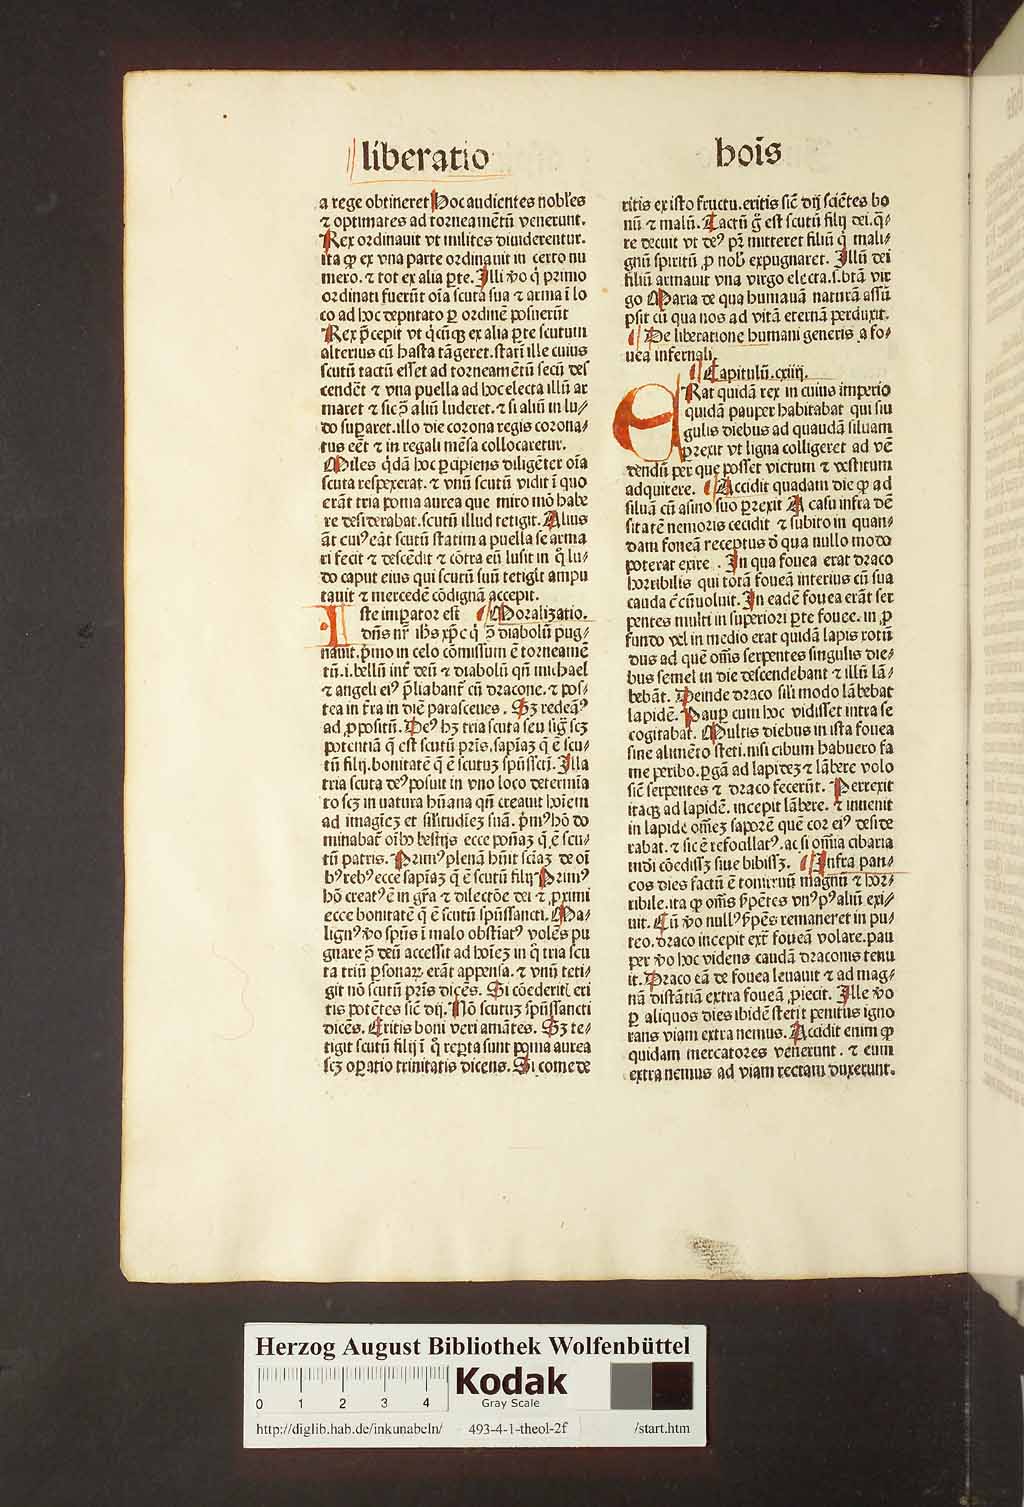 liberatio
hoīs
a rege obtineret Hoc audientes nobiles
⁊ optimates ad torneamētū venerunt.
Rex ordinauit vt milites diuiderentur.
ita ꝙ ex vna parte ordinauit in certo nu
mero. ⁊ tot ex alia ꝑte. Illi v̄o q̇ primo
ordinati fuerūt oīa scuta sua ⁊ arma ī lo
co ad hoc deputato ꝑ ordinē posuerūt
Rex p̄cepit vt q̇cūꝙ ex alia ꝑte scutum
alterius cū hasta tāgeret. statī ille cuius
scutū tactū esset ad torneamētū secū des
cendēt ⁊ vna puella ad hoc electa illū ar
maret ⁊ sic ꝯ̄ aliū luderet. ⁊ si aliū in lu⸗
do suꝑaret. illo die corona regis corona⸗
tus eēt ⁊ in regali mēsa collocaretur.
Miles q̇dā hoc ꝑcipiens diligēter oīa
scuta respexerat. ⁊ vnū scutū vidit ī quo
erāt tria poma aurea que miro mō habe
re desiderabat. scutū illud tetigit. Alius
āt cuiꝰ eāt scutū statim a puella se arma
ri fecit ⁊ descēdit ⁊ cōtra eū lusit in q̇ lu⸗
do caput eius qui scutū suū tetigit ampu
tauit ⁊ mercedē cōdignā accepit.
Iste imꝑator est Moralizatio.
dn̄s nr̄ ihs xp̄c q̇ ꝯ̄ diabolū pug⸗
nauit. p̄mo in celo cōmissum ē torneamē
tū .i. bellū int̄ deū ⁊ diabolū qn̄ michael
⁊ angeli eiꝰ p̄liabant̄ cū dracone. ⁊ pos⸗
tea in t̄ra in diē parasceues. Sꝫ redeāꝰ
ad ꝓpositū. Deꝰ hꝫ tria scuta seu liḡ scꝫ
potentiā q̇ est scutū pr̄is. sapīaꝫ q̇ ē scu⸗
tū filij. bonitatē q̇ ē scutuꝫ sp̄ussctī. Illa
tria scuta deꝰ posuit in vno loco determīa
to scꝫ in natura hūana qn̄ creauit hoīem
ad imagīeꝫ et siłitudīeꝫ suā. p̄mꝰ hō do
minabat̄ oībꝰ bestijs ecce poñaꝫ q̇ ē scu⸗
tū patris. Primꝰ plenā hūit scīaꝫ de oī
bꝰ rebꝰ ecce sapīaꝫ q̇ ē scutū filij Primꝰ
hō creatꝰ ē in gr̄a ⁊ dilectōe dei ⁊ ꝓximi
ecce bonitatē q̇ ē scutū sp̄ussancti. Ma⸗
lignꝰ v̄o sp̄us ī malo obstīatꝰ volēs pu
gnare ꝯ̄ deū accessit ad hoīeꝫ in q̇ tria scu
ta triū ꝑsonaꝝ erāt appensa. ⁊ vnū teti⸗
git nō scutū pr̄is dicēs. Si cōederitī eri
tis potētes sic̄ dij. Nō scutuꝫ sp̄ussancti
dicēs. Eritis boni veri amātes. Sꝫ te⸗
tigit scutū filij ī q̇ reꝑta sunt poma aurea
scꝫ oꝑatio trinitatis dicens. Si comede
ritis ex isto fructu. eritis sic̄ dij sciētes bo
nū ⁊ malū. Tactū g̊ est scutū filij dei. q̄⸗
re decuit vt deꝰ pr̄ mitteret filiū q̇ mali⸗
gnū spiritū ꝓ nob̄ expugnaret. Illū dei
filiū armauit vna virgo electa .s. btā vir
go Maria de qua humauā naturā assū
psit cū qua nos ad vitā eternā perduxit.
De liberatione humani generis a fo⸗
uea infernali.
Capitulū .cxiiij.
ERat quidā rex in cuius imperio
quidā pauper habitabat qui siu
gulis diebus ad quaudā siluam
ꝑrexit vt ligna colligeret ad vē
dendū per que posset victum ⁊ vestitum
adquirere. Accidit quadam die ꝙ ad
siluā cū asino suo ꝑrexit A casu infra dē
sitatē nemoris cecidit ⁊ subito in quan⸗
dam foueā receptus d̄ qua nullo modo
poterat exire. In qua fouea erat draco
horribilis qui totā foueā interius cū sua
cauda ē cūuoluit. In eadē fouea erāt ser
pentes multi in superiori ꝑte fouee. in ꝓ
fundo vel in medio erat quidā lapis rotū
dus ad quē om̄s serpentes singulis die⸗
bus semel in die descendebant ⁊ illū lā⸗
bebāt. Deinde draco sili modo lābebat
lapidē. Pauꝑ cum hoc vidisset intra se
cogitabat̄. Multis diebus in ista fouea
sine alimēto steti. nisi cibum habuero fa
me peribo. ꝑgā ad lapideꝫ ⁊ lābere volo
sic̄ serpentes ⁊ draco fecerūt. Perrexit
itaqꝫ ad lapidē. incepit lābere. ⁊ inuenit
in lapide om̄eꝫ saporē quē cor eiꝰ deside
rabat. ⁊ sic ē refocillatꝰ. ac si om̄ia cibaria
mūdi cōedissꝫ siue bibissꝫ. Infra pau⸗
cos dies factū ē tonitruū magnū ⁊ hor⸗
ribile. ita ꝙ om̄s sp̄entes vnꝰ pꝰ aliū exi⸗
uit. Cū v̄o nullꝰ sp̄ens remaneret in pu⸗
teo. draco incepit ext̄ foueā volare. pau
per v̄o hoc videns caudā draconis tenu
it. Draco eā de fouea leuauit ⁊ ad mag⸗
nā distātiā extra foueā ꝓiecit. Ille v̄o
ꝑ aliquos dies ibidē stetit penitus igno
rans viam extra nemus. Accidit enim ꝙ
quidam mercatores venerunt. ⁊ eum
extra nemus ad viam rectam duxerunt.
Herzog August Bibliothek Wolfenbüttel
0 1 2 3 4
Kodak
Gray Scale
http://diglib.hab.de/inkunabeln/ 493-4-1-theol-2f /start.htm